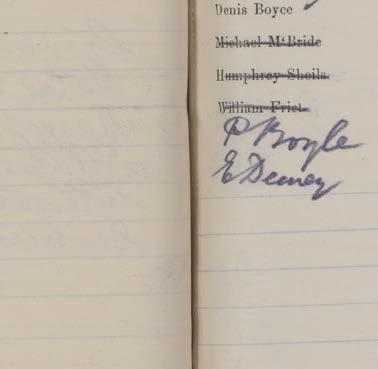 Denis Boyce
Michael M‘Bride
Humphrey Sheils
William Friel
P Boyle
E Deeney